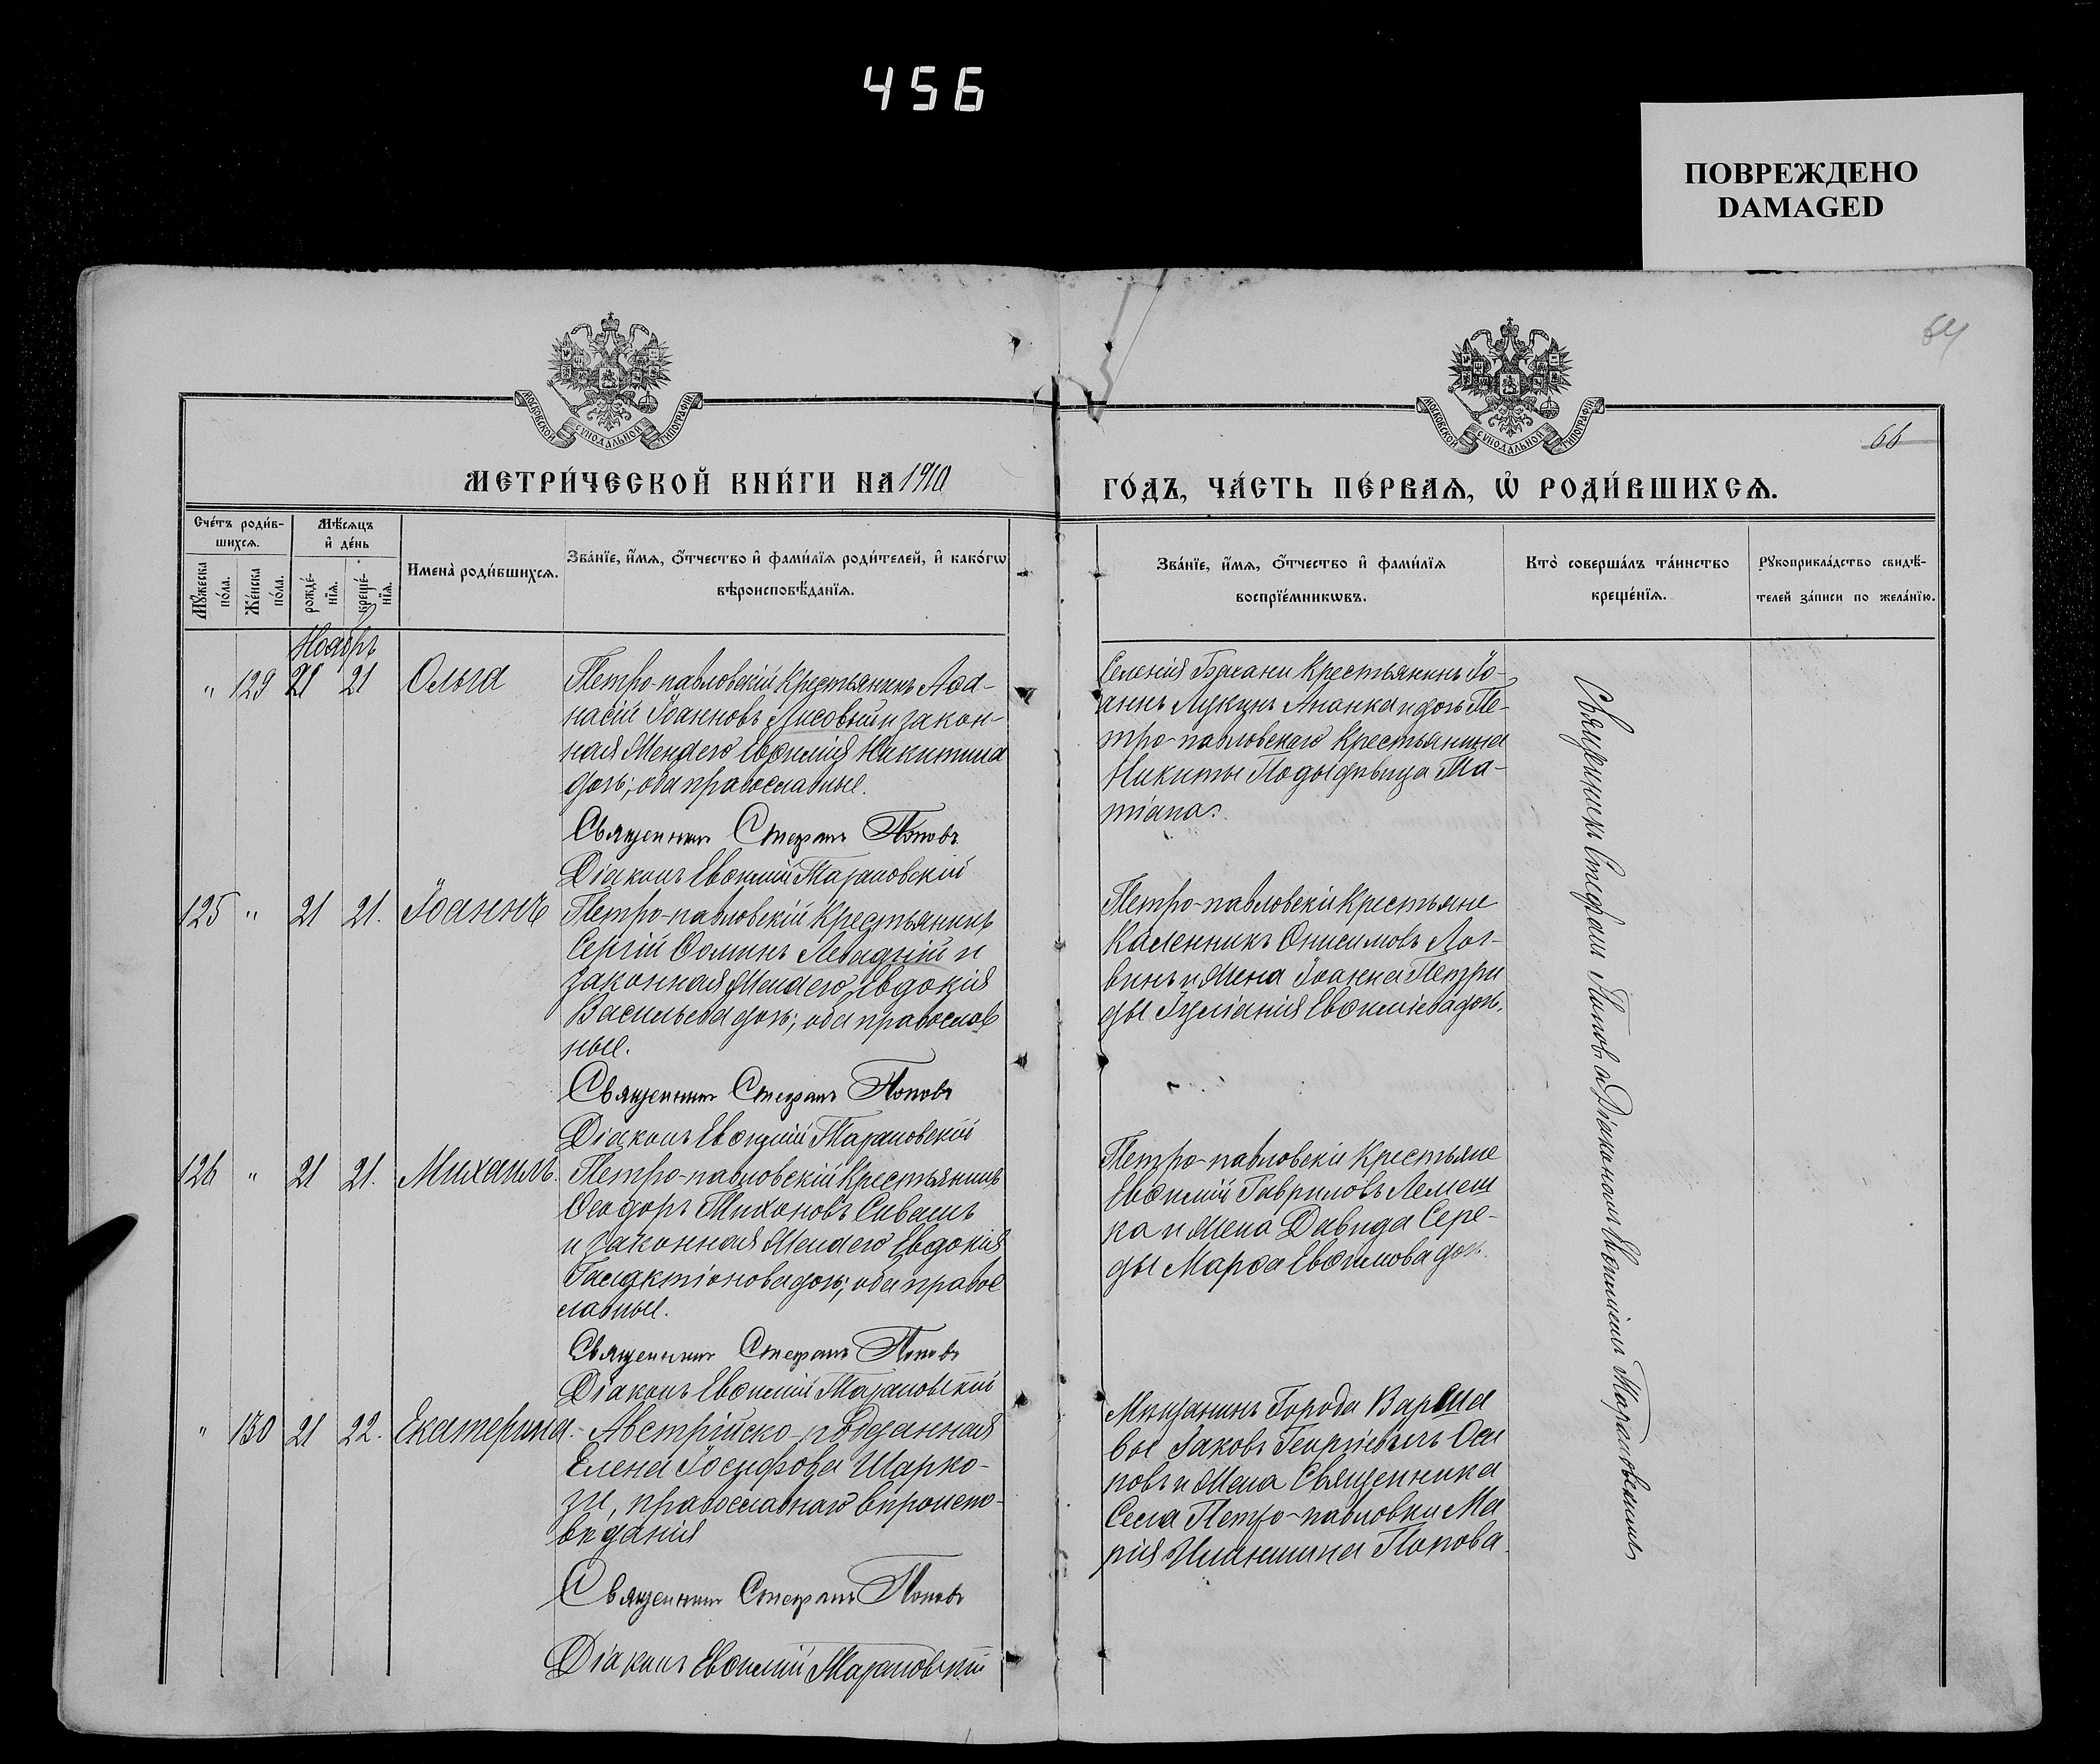 456
ПОВРЕЖДЕНО
DAMAGED
64
МОСКОВСКОЙ СѴНОДАЛЬНОЙ ТИПОГРАФІИ
МОСКОВСКОЙ СѴНОДАЛЬНОЙ ТИПОГРАФІИ
66
МЕТРИ́ЧЕСКОЙ КНИ́ГИ НА 1910
ГО́ДЪ, ЧА́СТЬ ПЕ́РВАЯ, Ѡ҆ РОДИ́ВШИХСЯ.
Сче́тъ роди́в-
шихся.
Мꙋ́жеска по́ла.
Же́нска по́ла.
Мѣ́сяцъ
и҆ де́нь
рожде́-
нїя.
креще́-
нїя.
Имена̀ роди́вшихся.
Зва́нїе, и҆́мя, ѻ҆́тчество и҆ фами́лїя роди́телей, и҆ како́гѡ
вѣроисповѣ́данїя.
Зва́нїе, и҆́мя, ѻ҆́тчество и҆ фами́лїя
воспрїе́мникѡвъ.
Кто̀ соверша́лъ та́инство
креще́нїя.
Рꙋкоприкла́дство свидѣ́-
телей за́писи по жела́нїю.
Ноябрь
" 129 21 21 Ольга
Петро-павловскій Крестьянинъ Аѳа-
насій Іоанновъ Лисовый и закон-
ная жена его Евѳимія Никитина
дочь; оба православные.
Священникъ Стефанъ Поповъ
Діаконъ Евѳимій Тарановскій
Селенія Бричани Крестьянинъ Іо-
аннъ Лукинъ Апанка и дочь Пе-
тро-павловскаго Крестьянина
Никиты Подыдивица Та-
тіана.
125 " 21 21. Іоаннъ
Петро-павловскій Крестьянинъ
Сергій Ѳоминъ Левадній и
законная жена его Евдокія
Васильева дочь; оба православ
ные.
Священникъ Стефанъ Поповъ
Діаконъ Евѳимій Тарановскій
Петро-павловскіи Крестьяне
Каленникъ Онисимовъ Лог-
винъ и жена Іоанна Петри
ды Іуліанія Евѳиміева дочь.
126 " 21 21. Михаилъ.
Петро-павловскій Крестьянинъ
Ѳеодоръ Тихоновъ Сивашъ
и законная жена его Евдокія
Галактіонова дочь; оба правос
лавные.
Священникъ Стефанъ Поповъ
Діаконъ Евѳимій Тарановскій
Петро-павловскіи Крестьяне
Евѳимій Гавриловъ Лемеш
ка и жена Давида Сере-
ды Марѳа Евѳимова дочь.
" 130 21 22. Екатерина.
Австрійско-подданная
Елена Іосифова Шарко-
зи, православнаго вѣроиспо-
вѣданія
Священникъ Стефанъ Поповъ
Діаконъ Евѳимій Тарановскій
Мѣщанинъ Города Варша
вы Іаковъ Георгіевичъ Оси
повъ и жена Священника
Села Петро-павловки Ма
рія Попова.
Священникъ Стефанъ Поповъ и Діаконъ Евѳимій Тарановскій